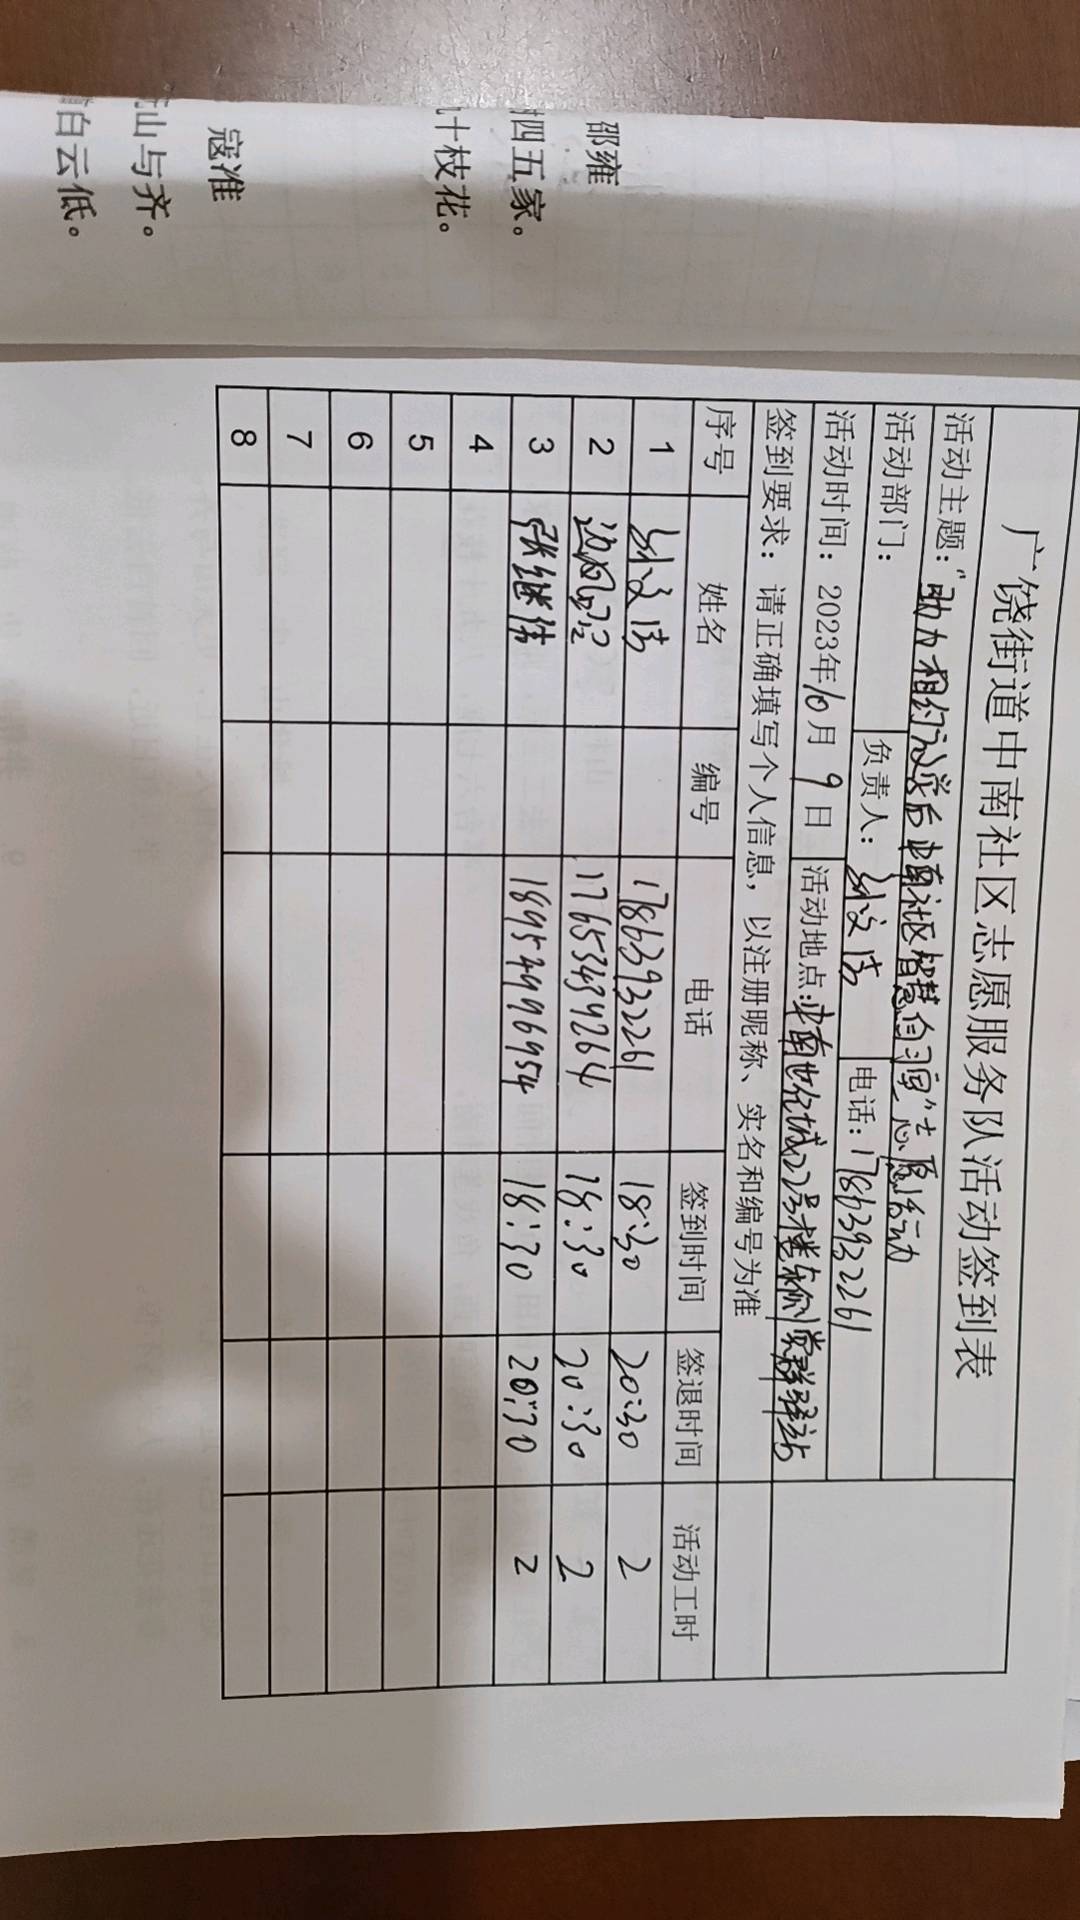 邵雍
四五家。
十枝花。
寇准
山与齐。
白云低。
广饶街道中南社区志愿服务队活动签到表
活动主题："助力相约 课后 中南社区智慧自习室"志愿活动
活动部门： 负责人： 电话：17863932261
活动时间：2023年10月9日 活动地点：中南世纪城22号楼 驿站
签到要求：请正确填写个人信息，以注册昵称、实名和编号为准
序号 姓名 编号 电话 签到时间 签退时间 活动工时
1 17863932261 18:30 20:30 2
2 17653439264 18:30 20:30 2
3 张继伟 18954996954 18:30 20:30 2
4
5
6
7
8